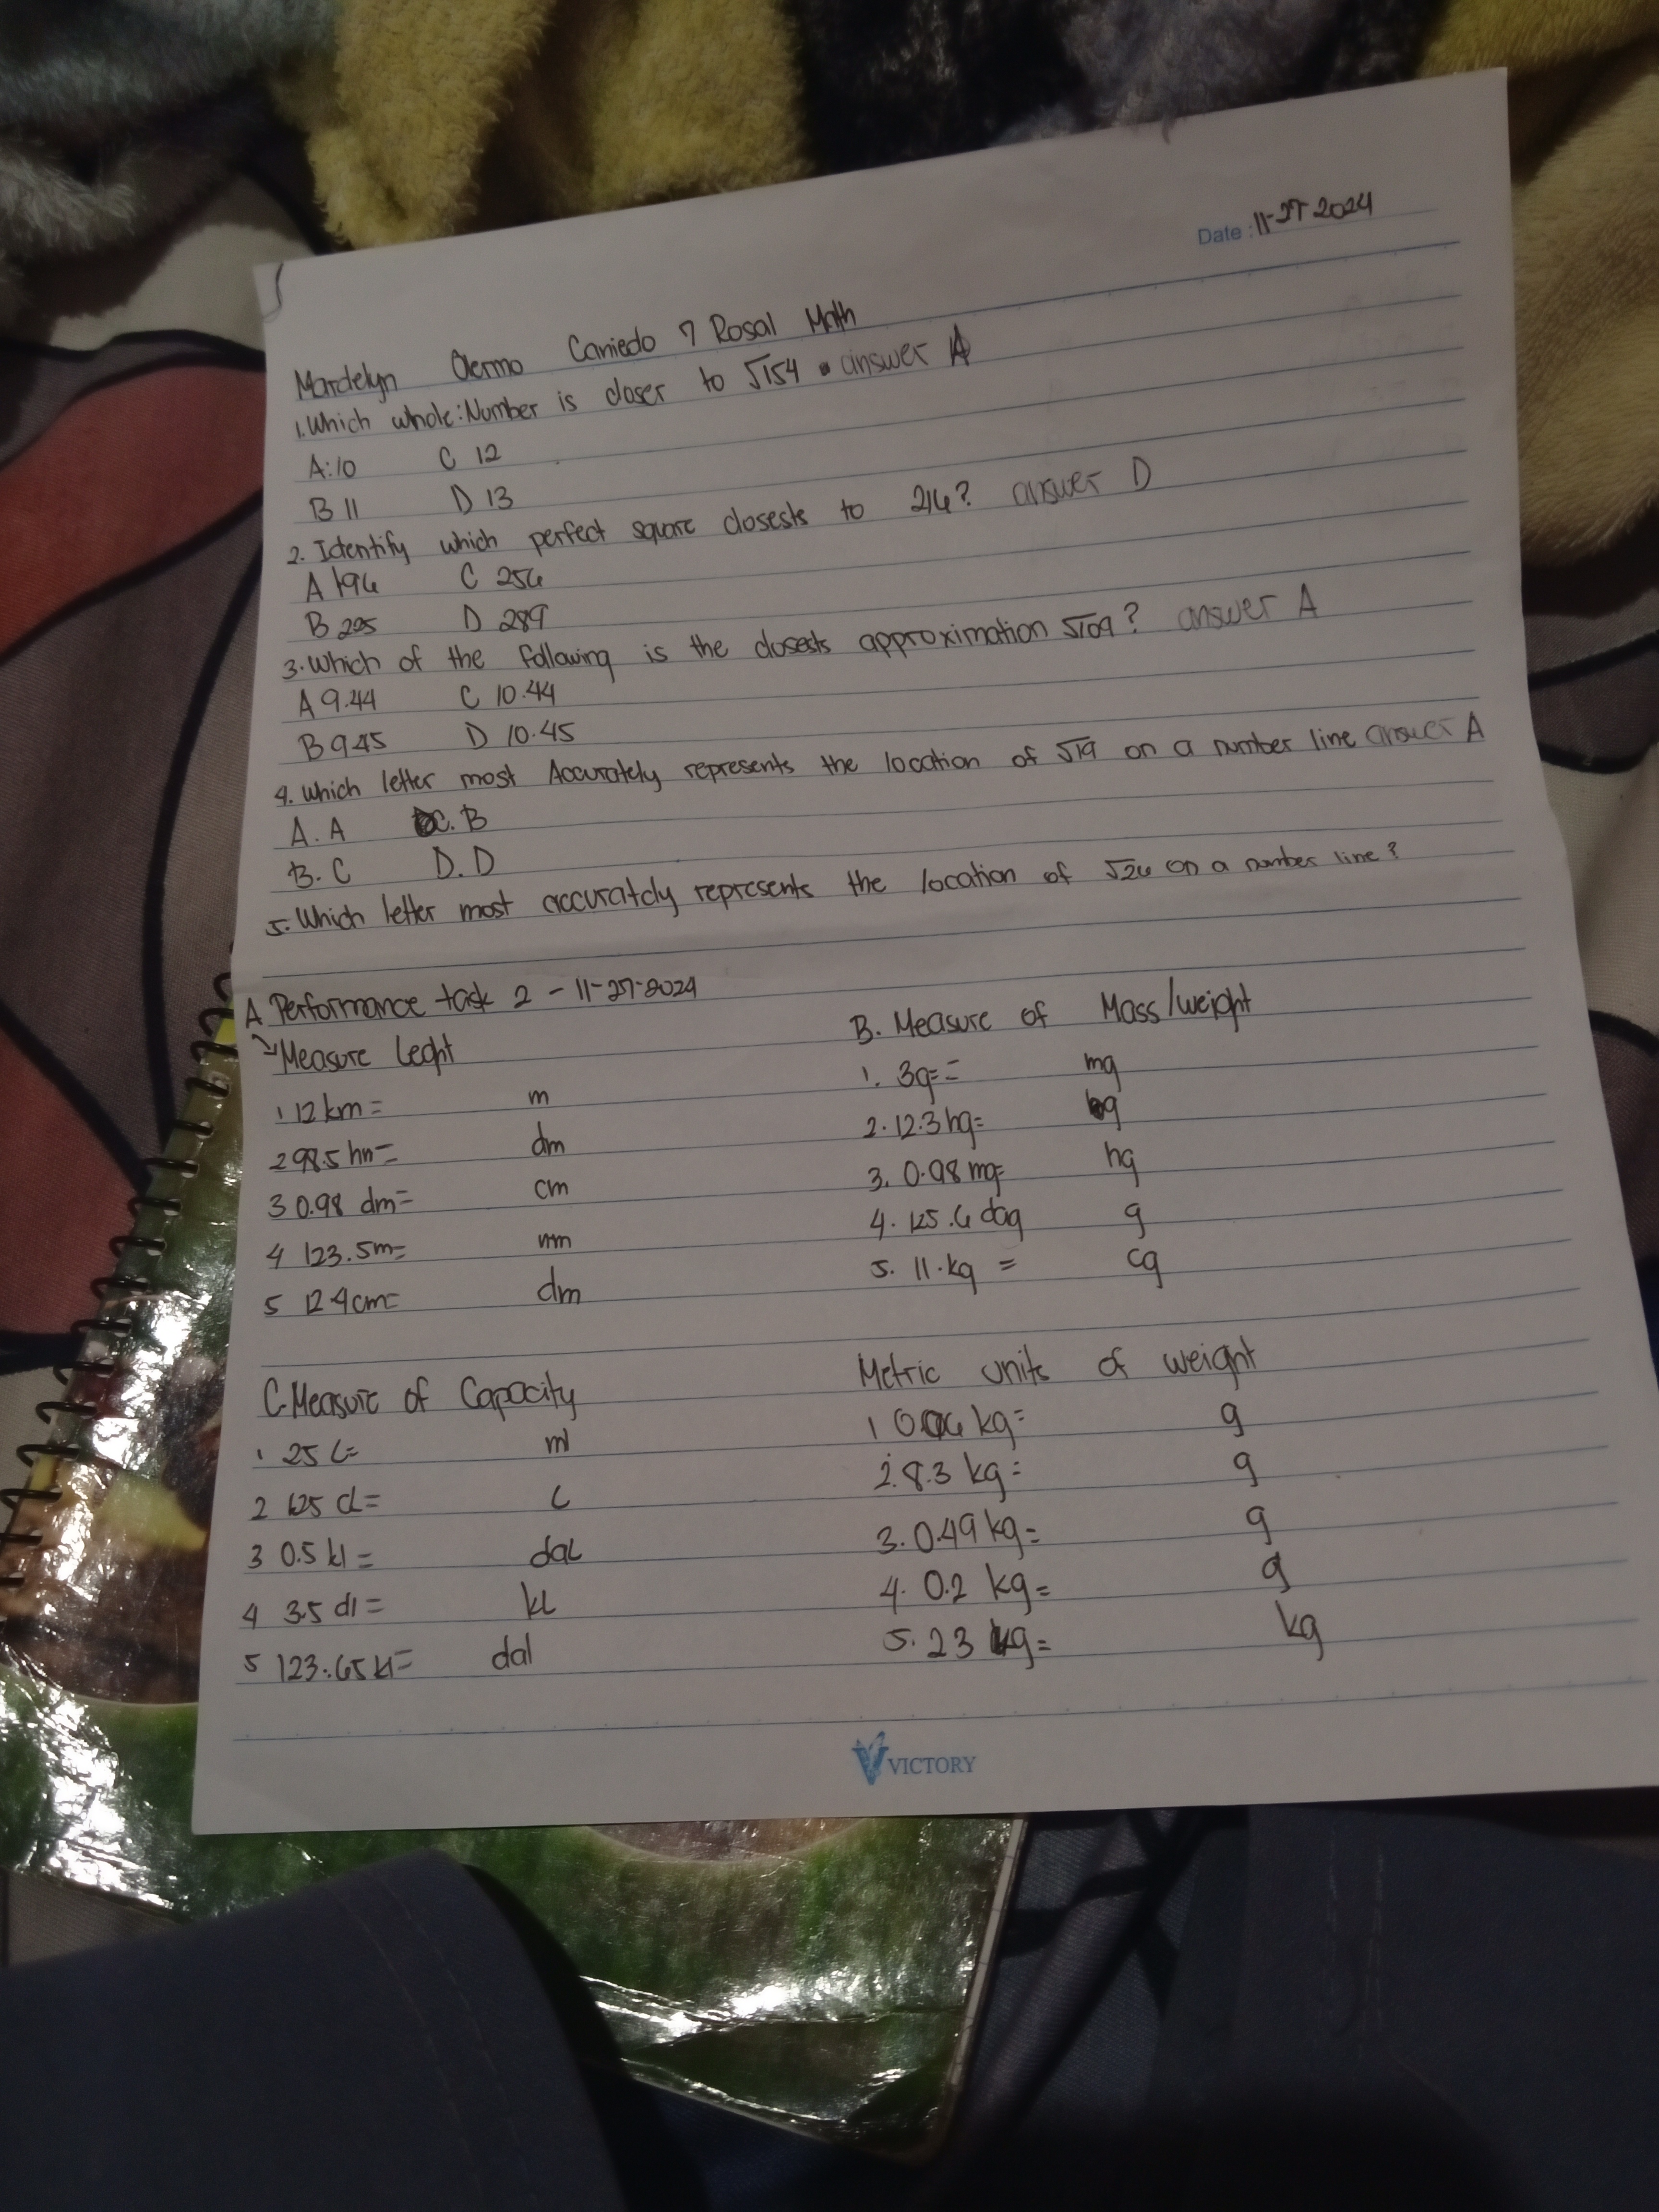 Date : 11-27 2024
Mardelyn Caniedo 7 Rosal Math
1. Which whole: Number is closer to √154 answer A
A: 10 C 12
B 11 D 13
2. Identify which perfect square closests to 216? answer D
A 196 C 256
B 225 D 289
3. Which of the following is the closests approximation √109? answer A
A 9.44 C 10.44
B 9.45 D 10.45
4. Which letter most Accurately represents the location of √19 on a number line answer A
A. A C. B
B. C D. D
5. Which letter most accurately represents the location of √26 on a number line?
A Performance task 2 - 11-27-2024
Measure Leght
1 12 km = m
2 98.5 hm = dm
3 0.98 dm = cm
4 123.5m = mm
5 12.4cm = dm
B. Measure of Mass/weight
1. 3g = = mg
2. 12.3 hg = g
3. 0.98 mg = hg
4. 125.6 dag g
5. 11. kg = cg
C. Measure of Capacity
1 25 L = ml
2 125 cl = L
3 0.5 kl = dal
4 3.5 dl = kl
5 123.65 kl = dal
Metric units of weight
1 kg = g
2. 8.3 kg = g
3. 0.49 kg = g
4. 0.2 kg = g
5. 23 kg = kg
VICTORY